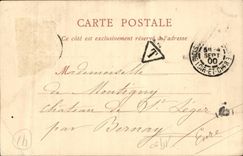 CARTE POSTALE
Ce côté est exclusivement réservé à l'adresse
T
SEPT
00
Mademoiselle
de Montigny
chateau de St Léger
par Bernay
Eure